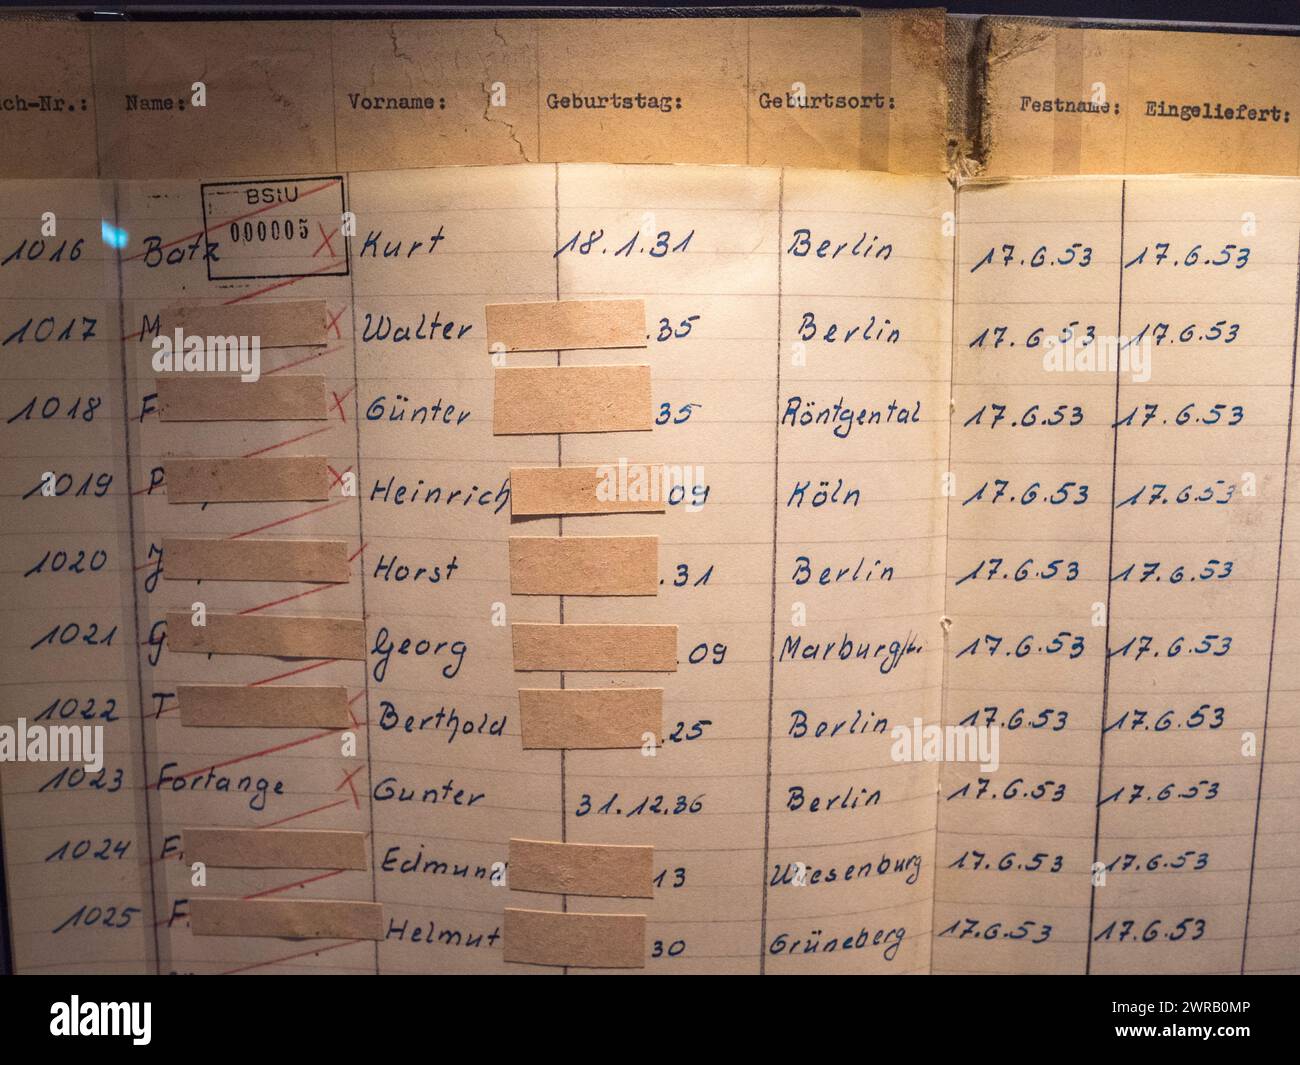 ch-Nr.: Name: Vorname: Geburtstag: Geburtsort: Festname: Eingeliefert:
BStU
000005
1016 Batz X Kurt 18.1.31 Berlin 17.6.53 17.6.53
1017 M X Walter .35 Berlin 17.6.53 17.6.53
1018 F X Günter 35 Röntgental 17.6.53 17.6.53
1019 P X Heinrich 09 Köln 17.6.53 17.6.53
1020 J Horst .31 Berlin 17.6.53 17.6.53
1021 G Georg .09 Marburg/L. 17.6.53 17.6.53
1022 T Berthold .25 Berlin 17.6.53 17.6.53
1023 Fortange X Gunter 31.12.36 Berlin 17.6.53 17.6.53
1024 F. Edmund 13 Wiesenburg 17.6.53 17.6.53
1025 F. Helmut 30 Grüneberg 17.6.53 17.6.53
alamy
Image ID: 2WRB0MP
www.alamy.com